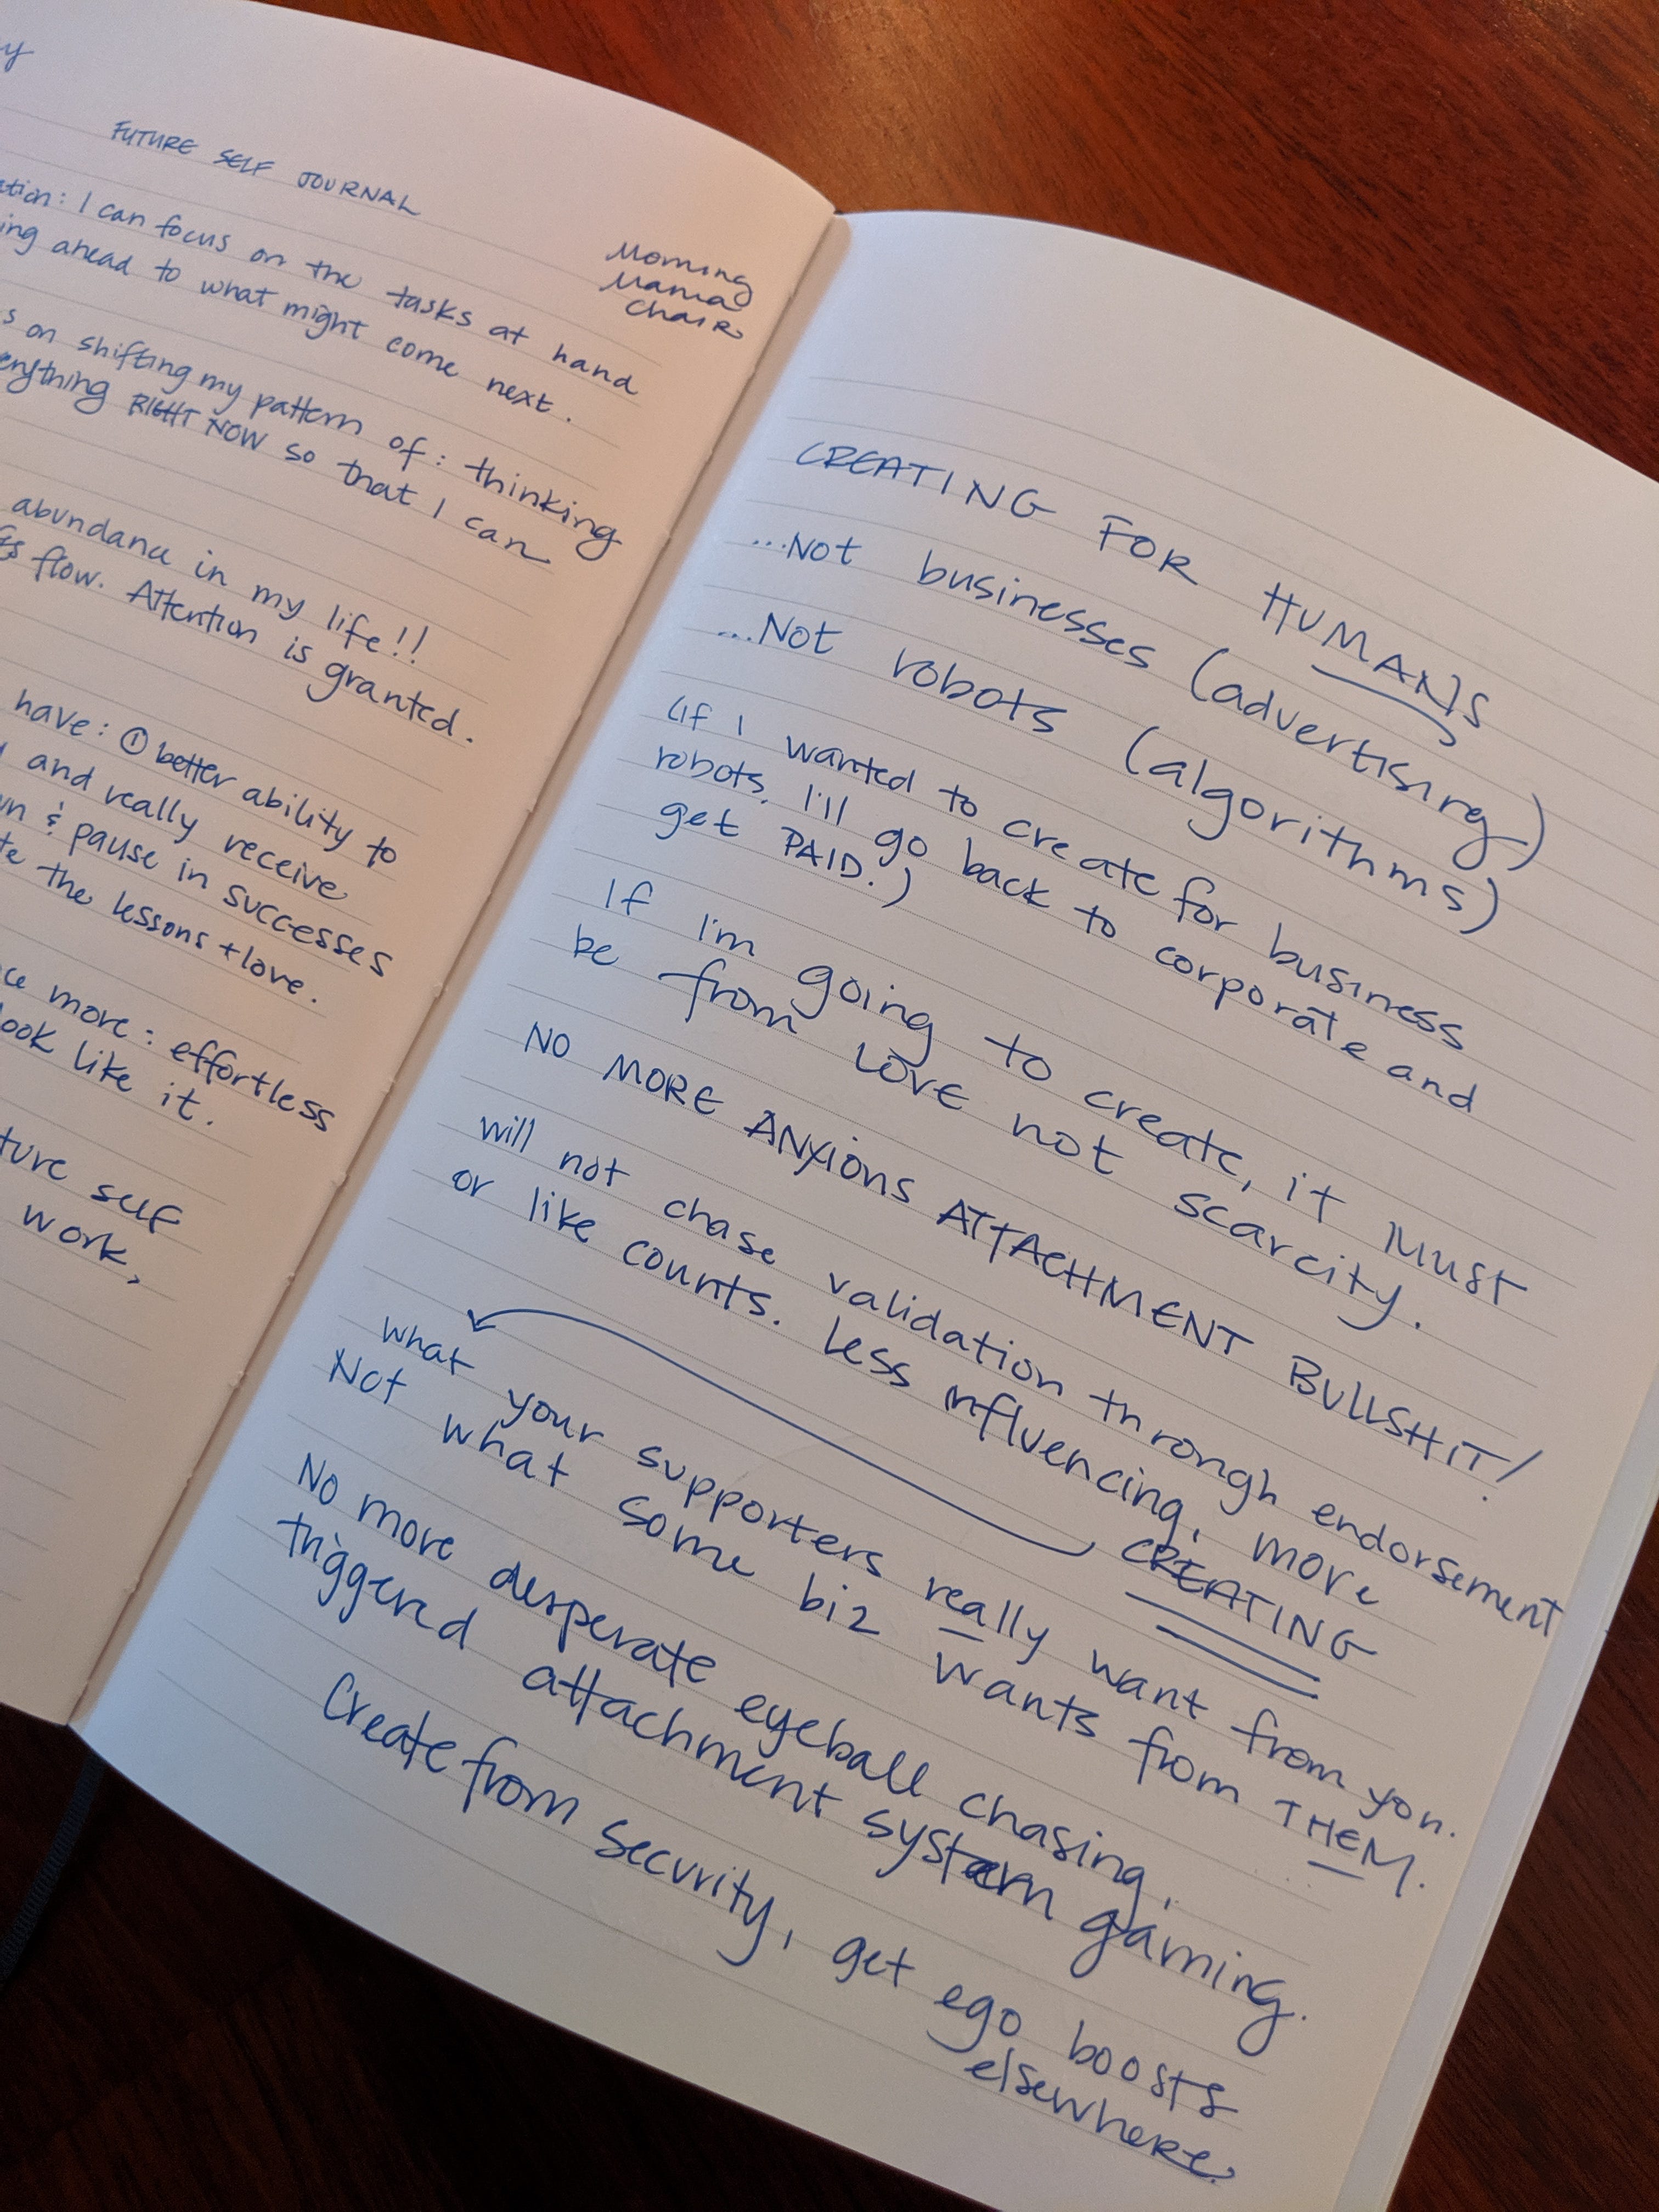 y
FUTURE SELF JOURNAL
Morning
Mama
Chair
ation: I can focus on the tasks at hand
ing ahead to what might come next.
s on shifting my pattern of: thinking
erything RIGHT NOW so that I can
abundance in my life!!
flow. Attention is granted.
have: ① better ability to
and really receive
wn & pause in successes
te the lessons + love.
ce more: effortless
look like it.
ture self
work,
CREATING FOR HUMANS
...Not businesses (advertising)
...Not robots (algorithms)
(If I wanted to create for business
robots, I'll go back to corporate and
get PAID.)
If I'm going to create, it Must
be from LOVE not scarcity.
NO MORE ANXIOUS ATTACHMENT BULLSHIT!
will not chase validation through endorsement
or like counts. Less influencing, more
CREATING
what your supporters really want from you.
Not what some biz wants from THEM.
No more desperate eyeball chasing,
triggered attachment system gaming.
Create from security, get ego boosts
elsewhere.